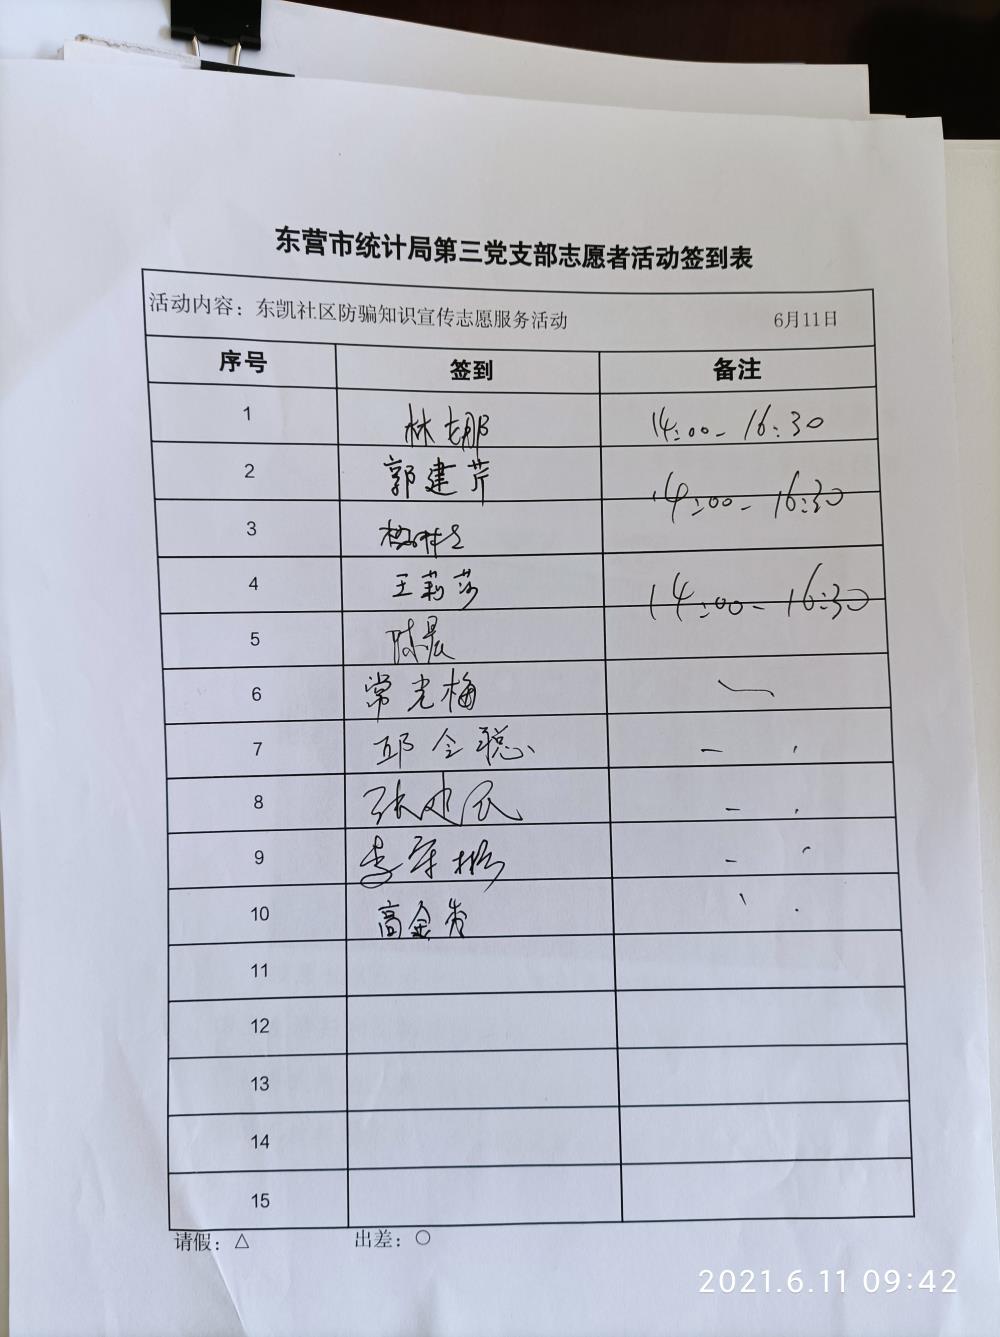 东营市统计局第三党支部志愿者活动签到表
活动内容：东凯社区防骗知识宣传志愿服务活动 6月11日
序号 签到 备注
1 林七那 14:00-16:30
2 郭建芹 14:00-16:30
3
4 王莉莎 14:00-16:30
5 陈晨
6 常光梅
7 邱令聪
8 张建民
9 李军彬
10 高金发
11
12
13
14
15
请假：△ 出差：○
2021.6.11 09:42